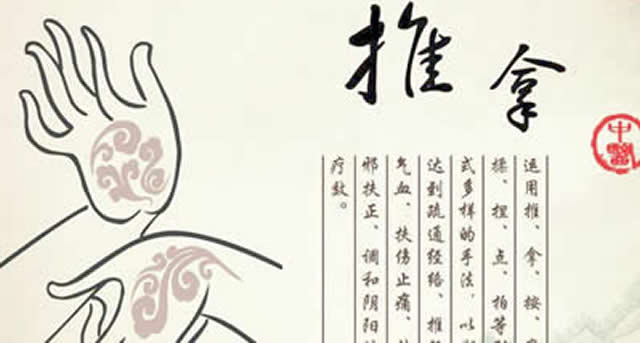 推拿
中醫
运用推、拿、按、
揉、捏、点、拍等
式多样的手法,以
达到疏通经络、推
气血、扶伤止痛、
邪扶正、调和阴阳
疗效。